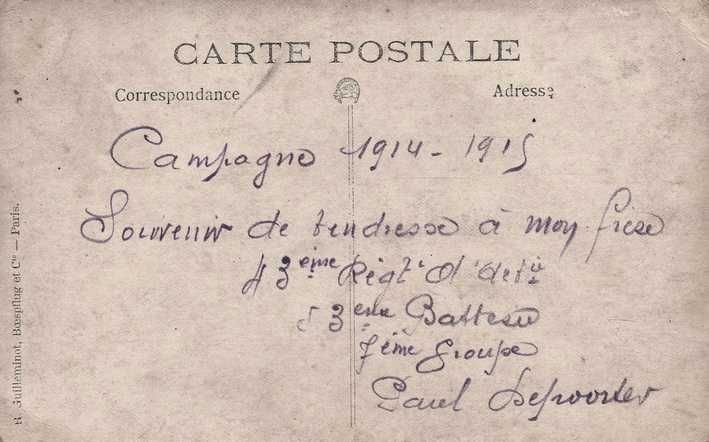 CARTE POSTALE
Correspondance
Adresse
Campagne 1914-1915
Souvenir de tendresse à mon frère
43ème Régt d'Art
53eme Batterie
7ème Groupe
Paul
R. Guilleminot, Bœspflug et Cie — Paris.